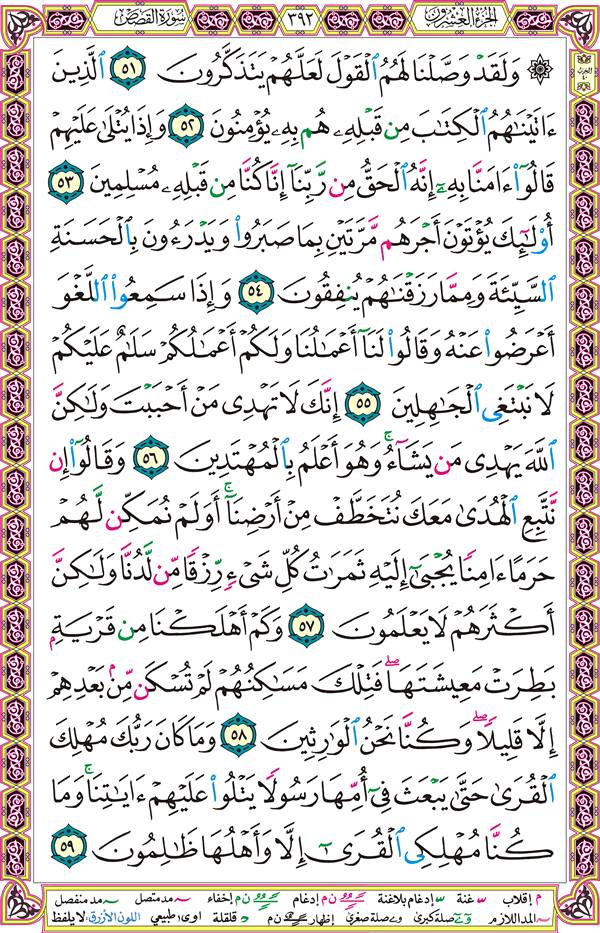 سورة القصص ٣٩٢ الجزء العشرون
۞ وَلَقَدْ وَصَّلْنَا لَهُمُ ٱلْقَوْلَ لَعَلَّهُمْ يَتَذَكَّرُونَ ٥١ ٱلَّذِينَ
ءَاتَيْنَٰهُمُ ٱلْكِتَٰبَ مِن قَبْلِهِۦ هُم بِهِۦ يُؤْمِنُونَ ٥٢ وَإِذَا يُتْلَىٰ عَلَيْهِمْ
قَالُوٓا۟ ءَامَنَّا بِهِۦٓ إِنَّهُ ٱلْحَقُّ مِن رَّبِّنَآ إِنَّا كُنَّا مِن قَبْلِهِۦ مُسْلِمِينَ ٥٣
أُو۟لَٰٓئِكَ يُؤْتَوْنَ أَجْرَهُم مَّرَّتَيْنِ بِمَا صَبَرُوا۟ وَيَدْرَءُونَ بِٱلْحَسَنَةِ
ٱلسَّيِّئَةَ وَمِمَّا رَزَقْنَٰهُمْ يُنفِقُونَ ٥٤ وَإِذَا سَمِعُوا۟ ٱللَّغْوَ
أَعْرَضُوا۟ عَنْهُ وَقَالُوا۟ لَنَآ أَعْمَٰلُنَا وَلَكُمْ أَعْمَٰلُكُمْ سَلَٰمٌ عَلَيْكُمْ
لَا نَبْتَغِى ٱلْجَٰهِلِينَ ٥٥ إِنَّكَ لَا تَهْدِى مَنْ أَحْبَبْتَ وَلَٰكِنَّ
ٱللَّهَ يَهْدِى مَن يَشَآءُ ۚ وَهُوَ أَعْلَمُ بِٱلْمُهْتَدِينَ ٥٦ وَقَالُوٓا۟ إِن
نَّتَّبِعِ ٱلْهُدَىٰ مَعَكَ نُتَخَطَّفْ مِنْ أَرْضِنَآ ۚ أَوَلَمْ نُمَكِّن لَّهُمْ
حَرَمًا ءَامِنًا يُجْبَىٰٓ إِلَيْهِ ثَمَرَٰتُ كُلِّ شَىْءٍ رِّزْقًا مِّن لَّدُنَّا وَلَٰكِنَّ
أَكْثَرَهُمْ لَا يَعْلَمُونَ ٥٧ وَكَمْ أَهْلَكْنَا مِن قَرْيَةٍۭ
بَطِرَتْ مَعِيشَتَهَا ۖ فَتِلْكَ مَسَٰكِنُهُمْ لَمْ تُسْكَن مِّنۢ بَعْدِهِمْ
إِلَّا قَلِيلًا ۖ وَكُنَّا نَحْنُ ٱلْوَٰرِثِينَ ٥٨ وَمَا كَانَ رَبُّكَ مُهْلِكَ
ٱلْقُرَىٰ حَتَّىٰ يَبْعَثَ فِىٓ أُمِّهَا رَسُولًا يَتْلُوا۟ عَلَيْهِمْ ءَايَٰتِنَا ۚ وَمَا
كُنَّا مُهْلِكِى ٱلْقُرَىٰٓ إِلَّا وَأَهْلُهَا ظَٰلِمُونَ ٥٩
م إقلاب غنة إدغام بلاغنة ن م إدغام ن م إخفاء مد متصل مد منفصل
المد اللازم صلة كبرى صلة صغرى إظهار ن م قلقلة اوى طبيعي اللون الأزرق: لا يلفظ